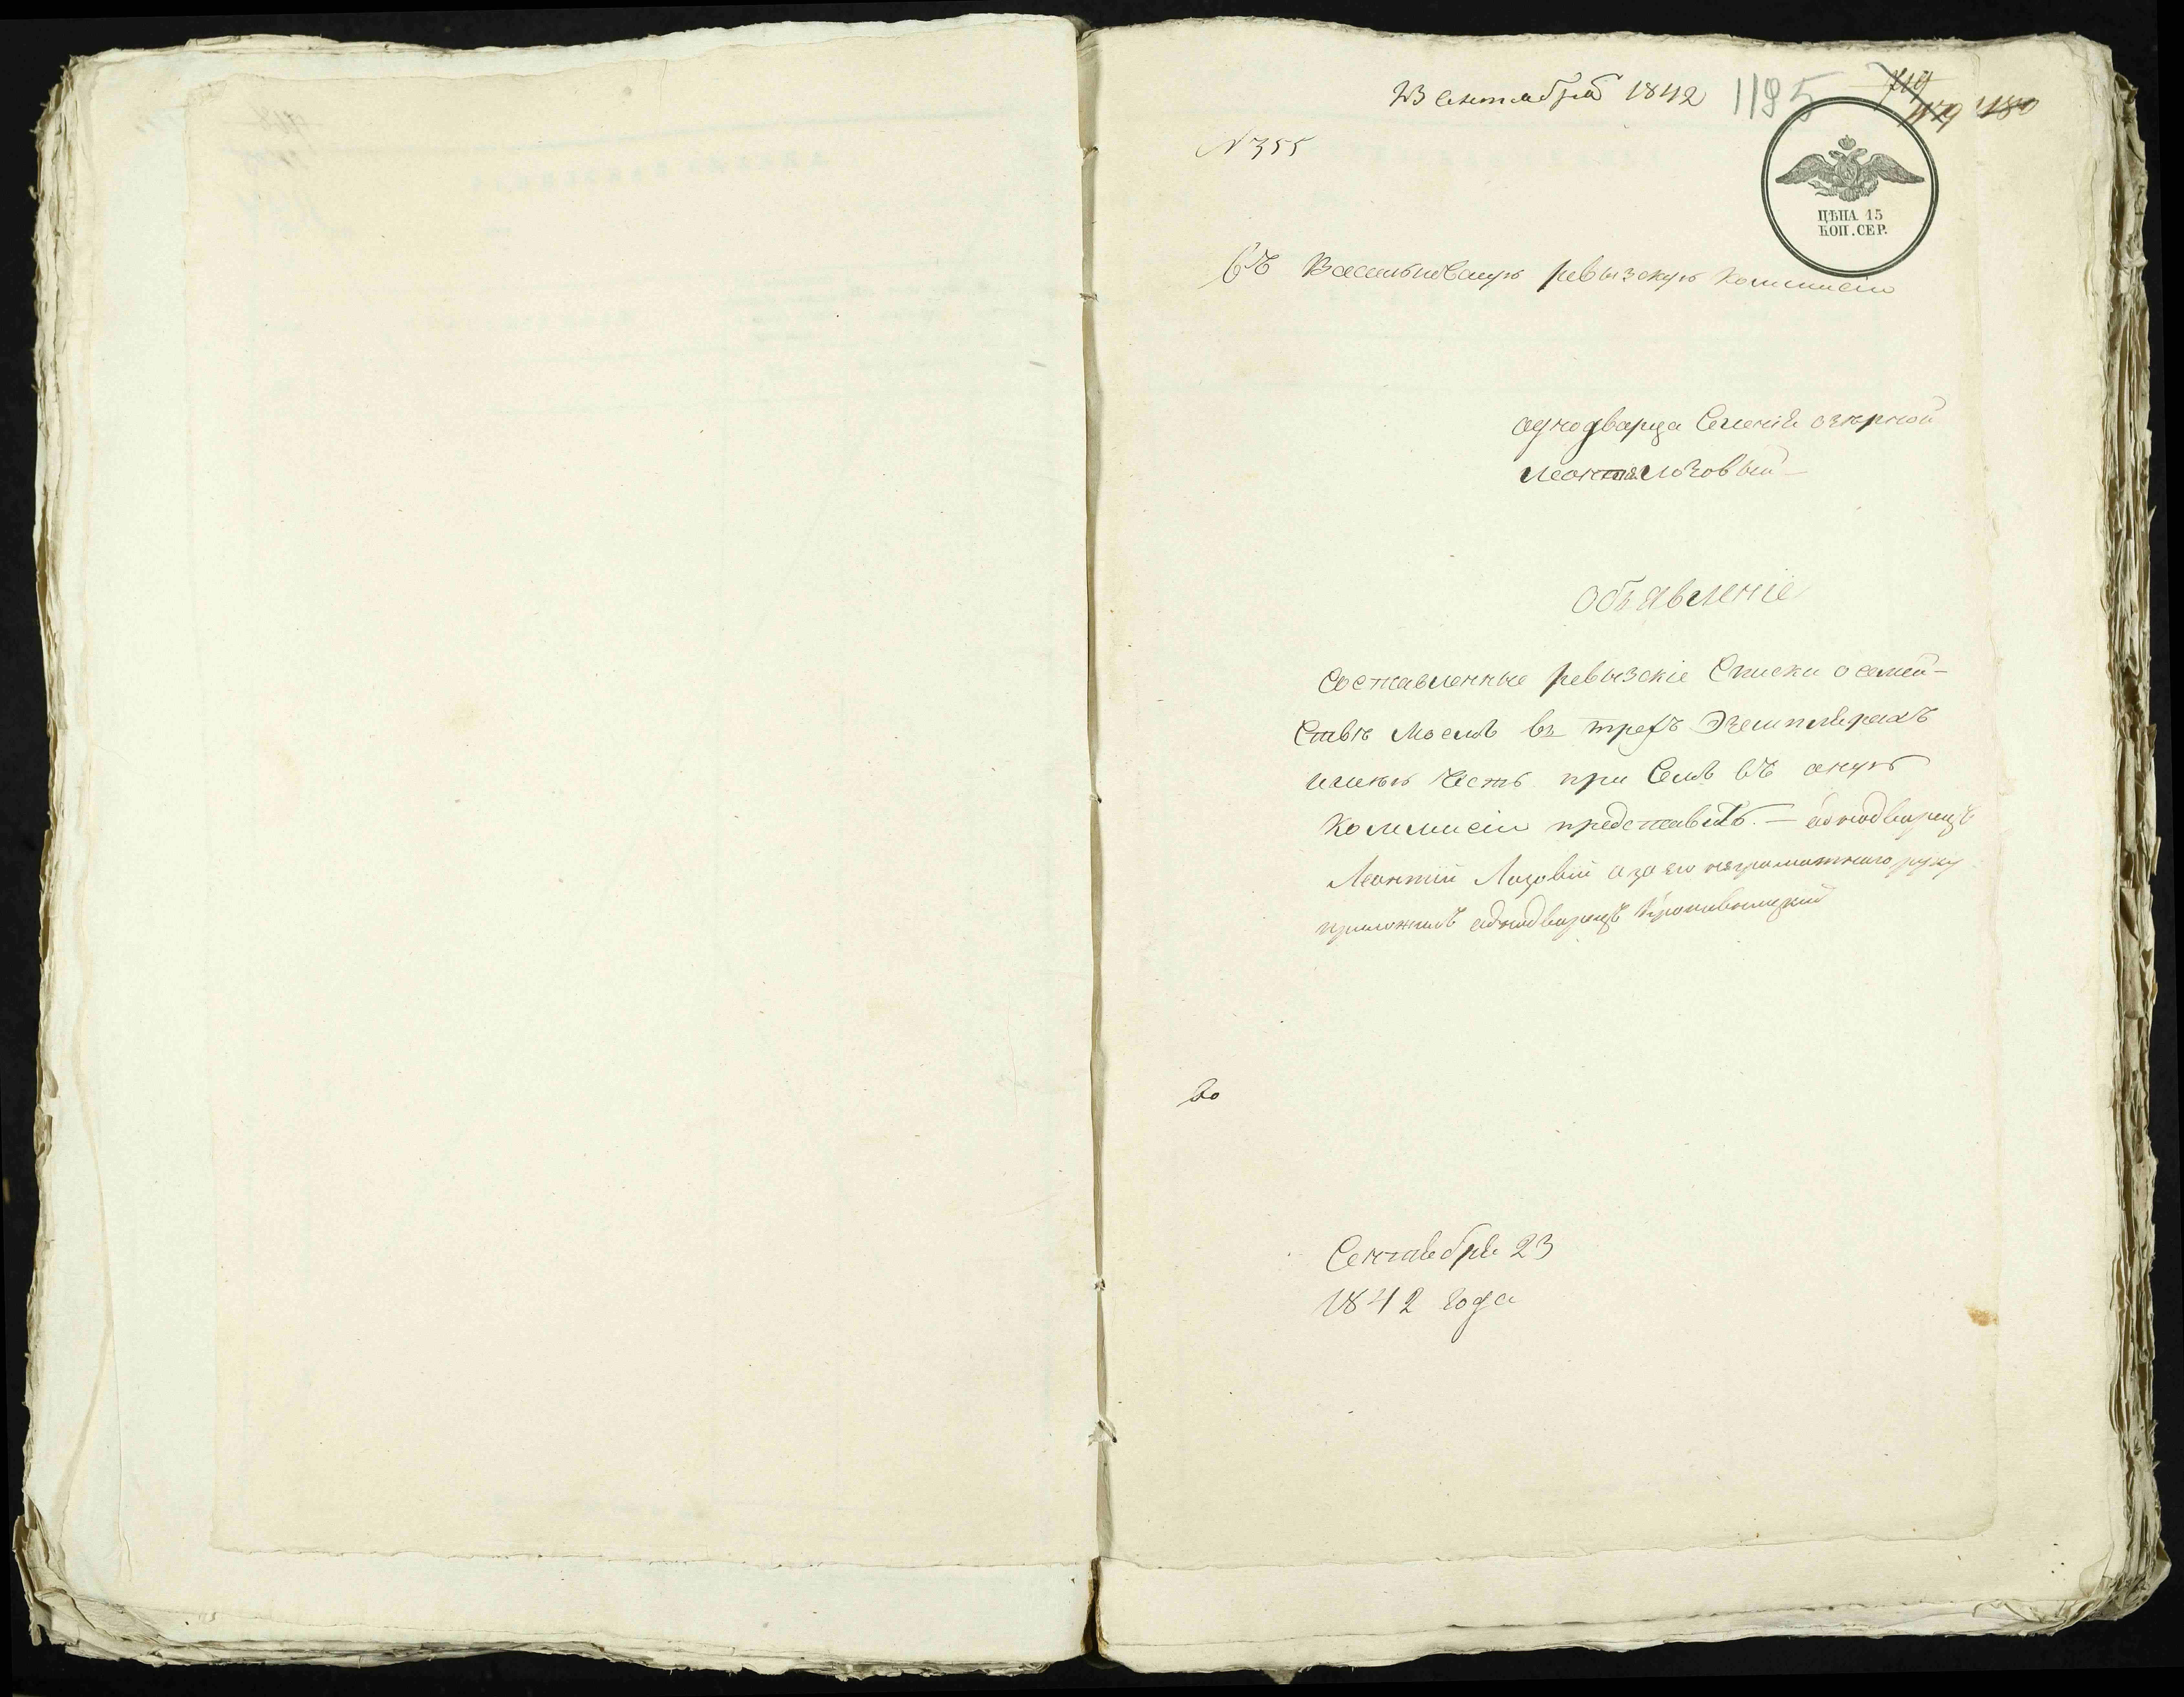 23 сентября 1842 1195 719
1179 1180
N 355
ЦѢНА 15
КОП. СЕР.
Въ Васильковскую ревызскую Коммисию
однодварца Селенія озѣрной
Леонтія Лозовый
Объявленіе
Составленные ревызскіе Списки о семей-
Ствѣ моемъ въ трехъ Эземплярахъ
имѣю честь при Семъ въ оную
Коммисию представить. — однодворецъ
Леонтий Лозовий а за его неграмотнаго руку
приложилъ однодворецъ
Во
Сентября 23
1842 года